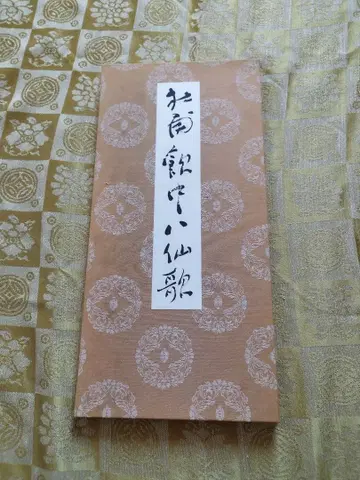 杜甫飲中八仙歌